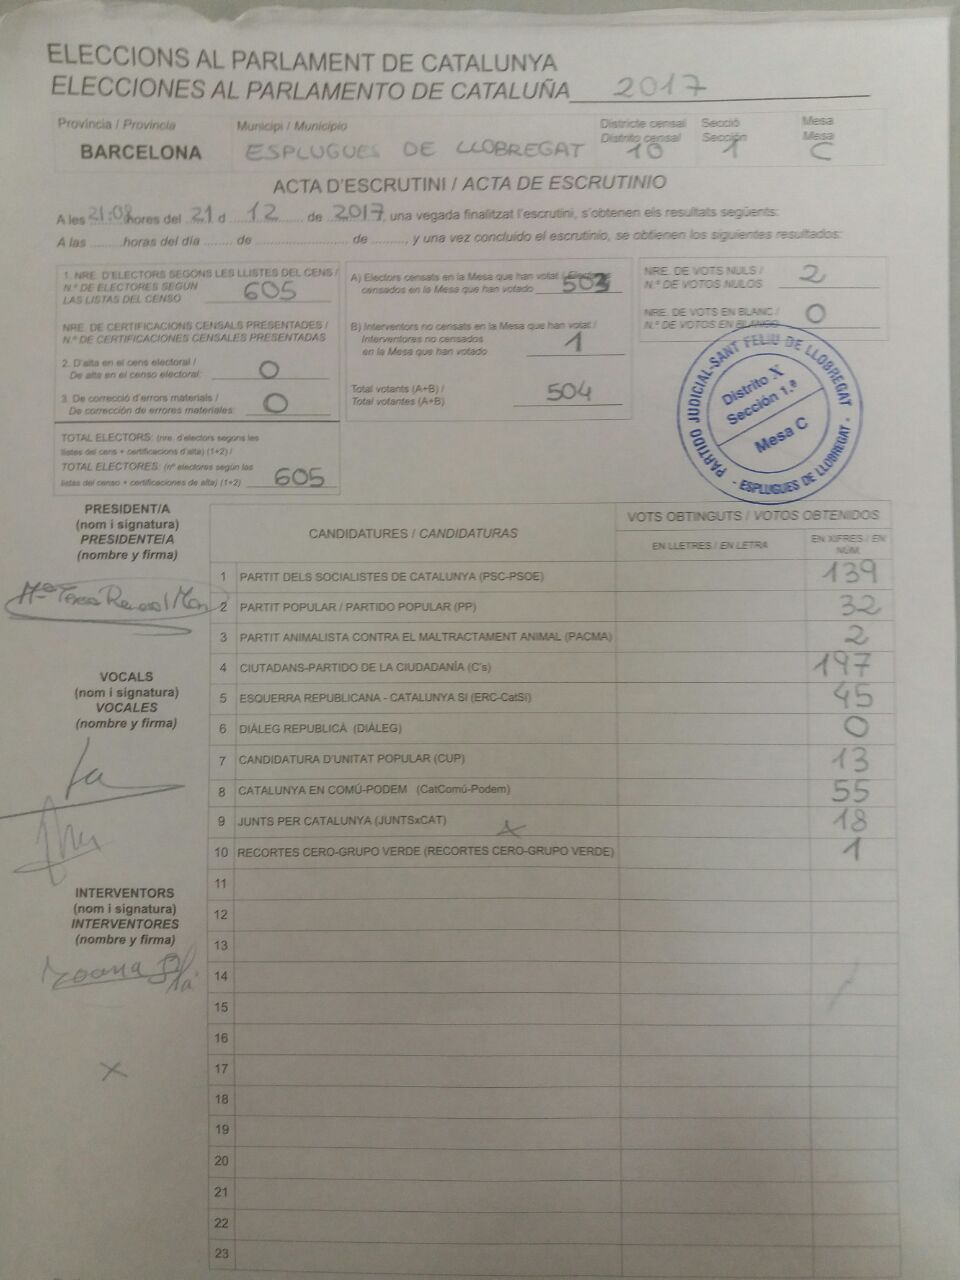 ELECCIONS AL PARLAMENT DE CATALUNYA
ELECCIONES AL PARLAMENTO DE CATALUÑA 2017
Província / Provincia
BARCELONA
Municipi / Municipio
ESPLUGUES DE LLOBREGAT
Districte censal
Distrito censal
10
Secció
Sección
1
Mesa
Mesa
C
ACTA D'ESCRUTINI / ACTA DE ESCRUTINIO
A les 21:08 hores del 21 d 12 de 2017, una vegada finalitzat l'escrutini, s'obtenen els resultats següents:
A las ......... horas del día ........ de .............................. de ........., y una vez concluido el escrutinio, se obtienen los siguientes resultados:
1. NRE. D'ELECTORS SEGONS LES LLISTES DEL CENS /
N.º DE ELECTORES SEGÚN
LAS LISTAS DEL CENSO
605
NRE. DE CERTIFICACIONS CENSALS PRESENTADES /
N.º DE CERTIFICACIONES CENSALES PRESENTADAS
2. D'alta en el cens electoral /
De alta en el censo electoral:
0
3. De correcció d'errors materials /
De corrección de errores materiales:
0
TOTAL ELECTORS: (nre. d'electors segons les
llistes del cens + certificacions d'alta) (1+2) /
TOTAL ELECTORES: (nº electores según las
listas del censo + certificaciones de alta) (1+2)
605
A) Electors censats en la Mesa que han votat / Electores
censados en la Mesa que han votado
503
B) Interventors no censats en la Mesa que han votat /
Interventores no censados
en la Mesa que han votado
1
Total votants (A+B) /
Total votantes (A+B)
504
NRE. DE VOTS NULS /
N.º DE VOTOS NULOS
2
NRE. DE VOTS EN BLANC /
N.º DE VOTOS EN BLANCO
0
PARTIDO JUDICIAL-SANT FELIU DE LLOBREGAT
Distrito X
Sección 1.ª
Mesa C
- ESPLUGUES DE LLOBREGAT -
PRESIDENT/A
(nom i signatura)
PRESIDENTE/A
(nombre y firma)
VOCALS
(nom i signatura)
VOCALES
(nombre y firma)
INTERVENTORS
(nom i signatura)
INTERVENTORES
(nombre y firma)
CANDIDATURES / CANDIDATURAS
VOTS OBTINGUTS / VOTOS OBTENIDOS
EN LLETRES / EN LETRA
EN XIFRES / EN NÚM.
1 PARTIT DELS SOCIALISTES DE CATALUNYA (PSC-PSOE) 139
2 PARTIT POPULAR / PARTIDO POPULAR (PP) 32
3 PARTIT ANIMALISTA CONTRA EL MALTRACTAMENT ANIMAL (PACMA) 2
4 CIUTADANS-PARTIDO DE LA CIUDADANÍA (C's) 197
5 ESQUERRA REPUBLICANA - CATALUNYA SÍ (ERC-CatSí) 45
6 DIÀLEG REPUBLICÀ (DIÀLEG) 0
7 CANDIDATURA D'UNITAT POPULAR (CUP) 13
8 CATALUNYA EN COMÚ-PODEM (CatComú-Podem) 55
9 JUNTS PER CATALUNYA (JUNTSxCAT) 18
10 RECORTES CERO-GRUPO VERDE (RECORTES CERO-GRUPO VERDE) 1
11
12
13
14
15
16
17
18
19
20
21
22
23